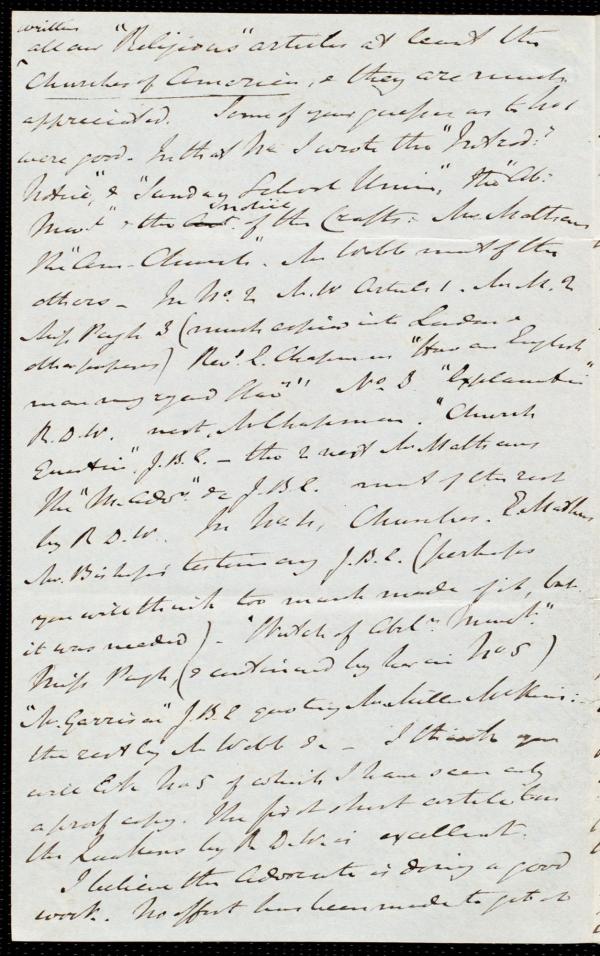 written
all our "Religious" articles at least the
"Churches of America, & they are much
appreciated. Some of your guesses as to No 1
were good. In that No I wrote the "Introd.y
Notice", & "Sunday School Union", the "Ab:
Mov.t" & the Notice of the Crafts: Mr. Mathews
the "Am. Church". Mr Webb most of the
others - In No. 2 R.W Article 1. Mr. M. 2
Miss Pugh 3 (much copied into London &
other papers) Rev.d E. Chapman "How an English
man may regard Slav.y" No 3 "Explanation"
R.D.W. next, Mr Chapman. "Church
Question", J.B.E. - the 2 next Mr Mathews
The "M. Adv.r" &c J.B.E. most of the rest
by R.D.W. In No 4, Churches. E. Mathews
Mr. Bishop's testimony J.B.E. (perhaps
you will think too much made of it, but
it was needed) - "Sketch of Abol.n Movt."
Miss Pugh, (& continued by her in No 5)
"Mr. Garrison" J.B.E quoting Mr Miller McKim:
the rest by Mr Webb &c - I think you
will like No 5 of which I have seen only
a proof copy. The first short article on
the Quakers by R.D.W. is excellent.
I believe the Advocate is doing a good
work. No effort has been made to get it